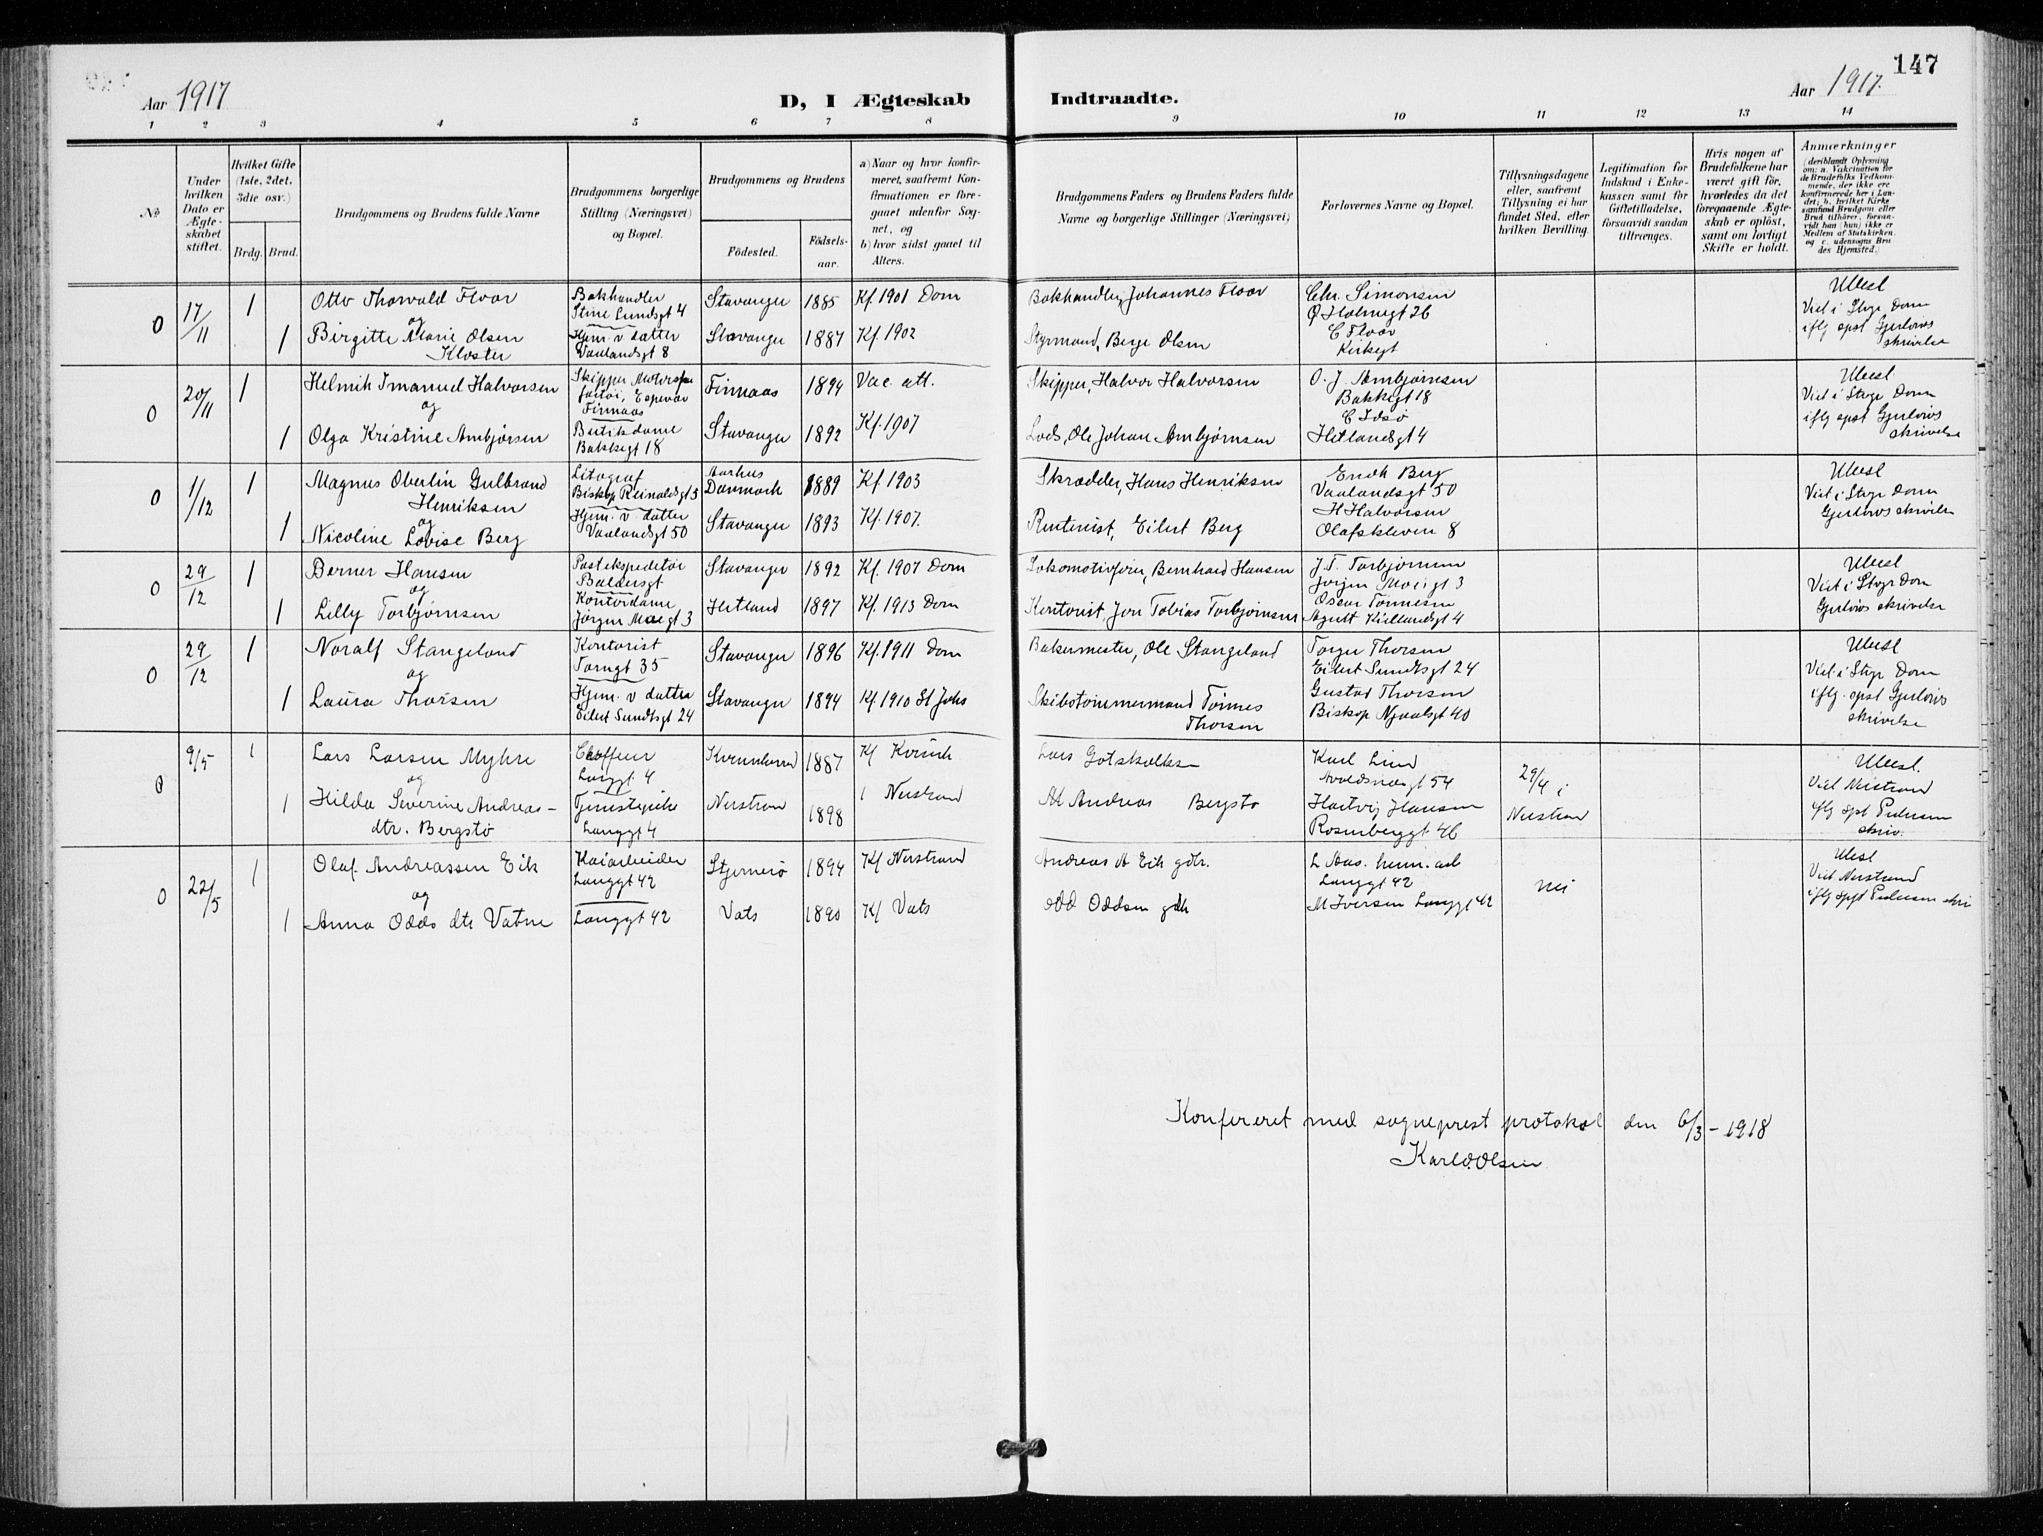 147
Aar 1917
D, I Ægteskab
Indtraadte.
Aar 1917.
1 2 3 4 5 6 7 8 9 10 11 12 13 14
No
Under hvilken Dato er Ægteskabet stiftet.
Hvilket Gifte (1ste, 2det, 3die osv.)
Brdg. Brud.
Brudgommens og Brudens fulde Navne
Brudgommens borgerlige Stilling (Næringsvei) og Bopæl.
Brudgommens og Brudens
Födested.
Födsels-aar.
a) Naar og hvor konfirmeret, saafremt Konfirmationen er foregaaet udenfor Sognet, og
b) hvor sidst gaaet til Alters.
Brudgommens Faders og Brudens Faders fulde Navne og borgerlige Stillinger (Næringsvei)
Forlovernes Navne og Bopæl.
Tillysningsdagene eller, saafremt Tillysning ei har fundet Sted, efter hvilken Bevilling.
Legitimation for Indskud i Enkekassen samt for Giftetilladelse, forsaavidt saadan tiltrænges.
Hvis nogen af Brudefolkene har været gift før, hvorledes da det foregaaende Ægteskab er oplöst, samt om lovligt Skifte er holdt.
Anmærkninger
(deriblandt Oplysning om: a. Vakcination for de Brudefolks Vedkommende, der ikke ere konfirmerede her i Landet; b. hvilket Kirkesamfund Brudgom eller Brud tilhörer, forsaavidt han (hun) ikke er Medlem af Statskirken. og c. udensogns Brudes Hjemsted.)
0 17/11 1 Otto Thorvald Floor Bokhandler Stine Lundsgt 4 Stavanger 1885 Kf. 1901 Dom Bokhandler, Johannes Floor Chr. Simonsen Ø Holmegt 26
og
1 Birgitte Marie Olsen Kloster Hjm. v datter Vaalandsgt 8 Stavanger 1887 Kf. 1902 Styrmand, Berge Olsen C Floor Kirkegt
Viet i Stvgr Dom iflg opst Gjerløws skrivelse
0 20/11 1 Helmik Imanuel Halvorsen Skipper Espevær Finnaas Finnaas 1894 Vac. att. Skipper, Halvor Halvorsen O. J. Ambjørnsen Bakkegt 18
og
1 Olga Kristine Ambjørsen Butikdame Bakkegt 18 Stavanger 1892 Kf. 1907 Lods, Ole Johan Ambjørnsen C Idsø Hetlandsgt 4
Viet i Stvgr Dom iflg opst Gjerløws skrivelse
0 1/12 1 Magnus Oberlin Gulbrand Henriksen Litograf Biskop Reinaldsgt 3 Aarhus Danmark 1889 Kf 1903 Skrædder, Hans Henriksen Endh Berg Vaalandsgt 50
og
1 Nicoline Lovise Berg Hjm. v datter Vaalandsgt 50 Stavanger 1893 Kf. 1907. Rentenist, Eilert Berg H Halvorsen Olafskleven 8
Viet i Stvgr Dom Gjerløws skrivelse
0 29/12 1 Berner Hansen Postekspeditør Baldersgt Stavanger 1892 Kf. 1907 Dom Lokomotivfører, Bernhard Hansen J. T. Torbjørnsen Jørgen Moesgt 3
og
1 Lilly Torbjørnsen Kontordame Jørgen Moegt 3 Hetland 1897 Kf. 1913 Dom Kontorist, Jon Tobias Torbjørnsen Oscar Tønnesen Agutt Kiellandsgt 4
Viet i Stvgr Dom Gjerløws skrivelse
0 29/12 1 Noralf Stangeland Kontorist Torngt 35 Stavanger 1896 Kf. 1911 Dom Bakermester, Ole Stangeland Torger Thorsen Eilert Sundtsgt 24
og
1 Laura Thorsen Hjm. v datter Eilert Sundtsgt 24 Stavanger 1894 Kf. 1910 St Johs Skibstømmermand Tønnes Thorsen Gustav Thorsen Biskop Njaalsgt 40
Viet i Stvgr Dom iflg. opst Gjerløws skrivelse
0 9/5 1 Lars Larsen Myhre Choffeur Langgt. 4 Kvinnherred 1887 Kf Kvinnh Lars Gotskalksen Karl Lind Avaldsnesgt 54
og
1 Hilda Severine Andreasdtr. Bergstø Tjenestepike Langgt 4 Nerstrand 1898 Nerstrand Andreas Bergstø Hartvig Hansen Rosenberggt 46 29/4 i Nerstran
Viet Nerstrand iflg spt Pedersen skriv.
0 22/5 1 Olaf Andreassen Eik Kaiarbeider Langgt 42 Stjernerø 1894 Kf Nerstrand Andreas A Eik gdr. L Aas. Langgt 42 nei
og
1 Anna Odds dtr Vatne Langgt 42 Vats 1890 Kf Vats Odd Oddsen gdr M Iversen Langgt 42
Viet Nerstrand iflg spt Pedersen skri
Konfereret med sogneprest protokol den 6/3 - 1918
Karl O. Olsen